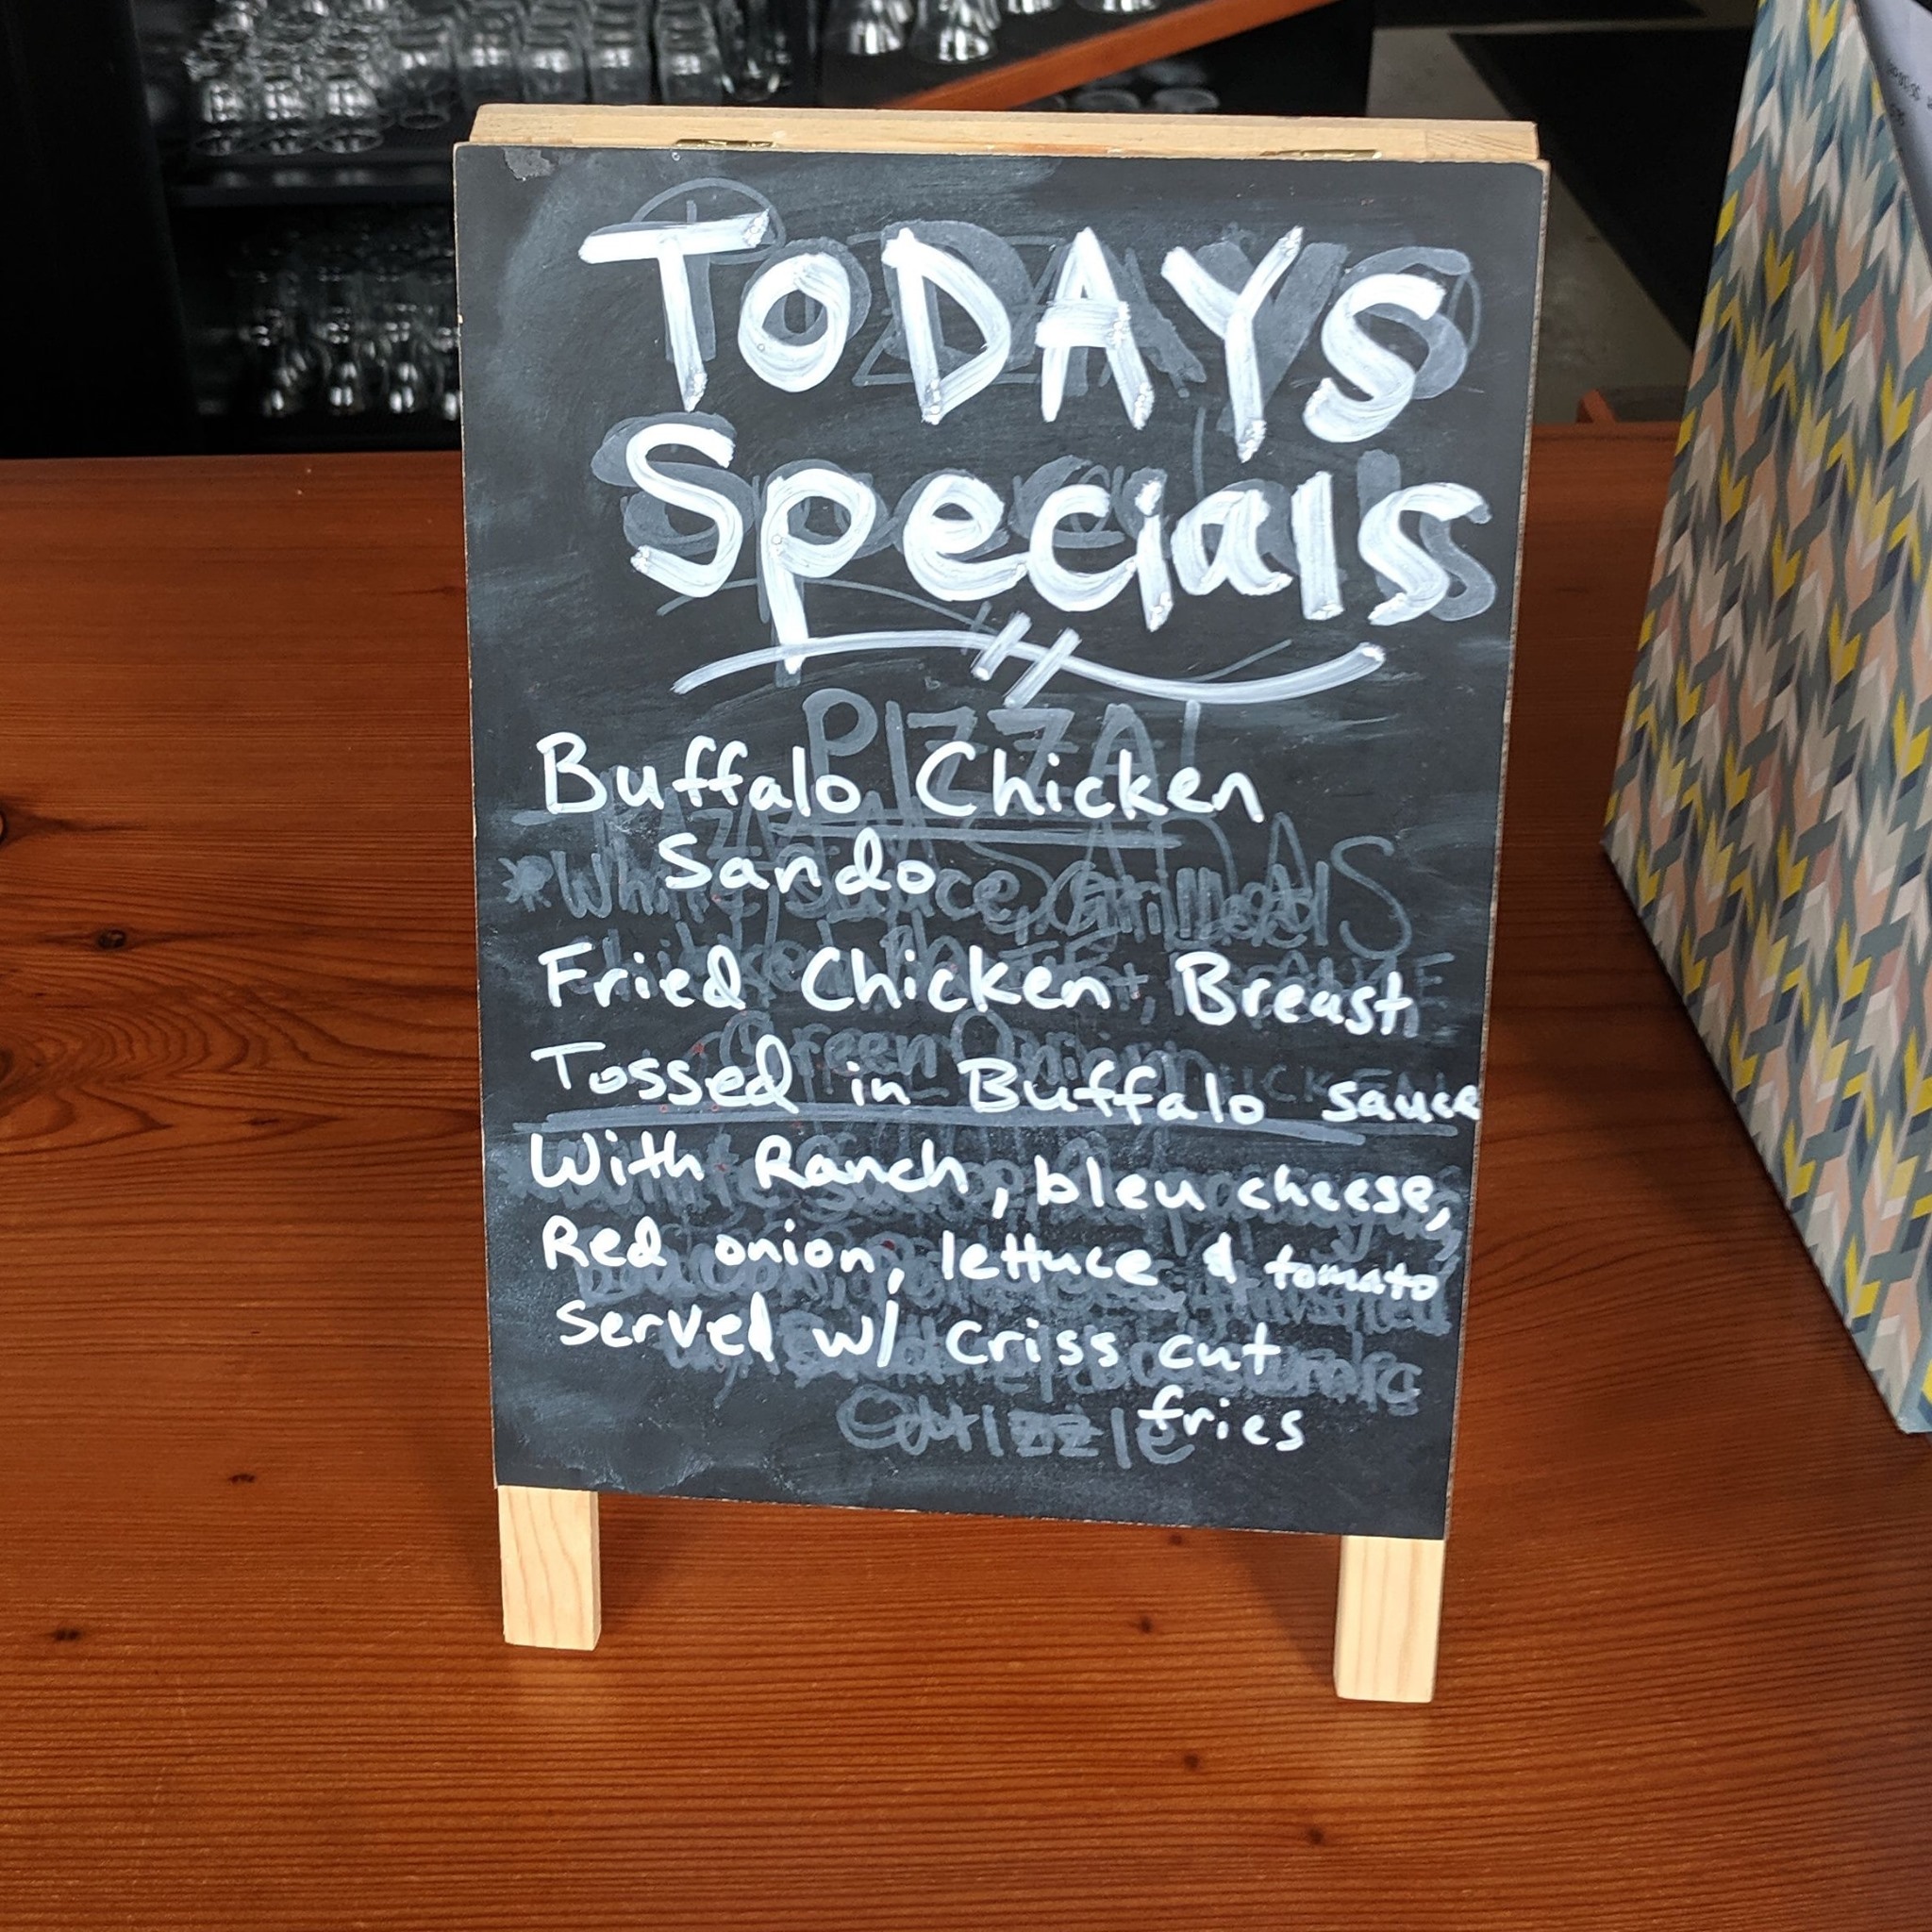 TODAYS
Specials
PIZZA!
Buffalo Chicken
Sando
Fried Chicken Breast
Green Onion
Tossed in Buffalo sauce
With Ranch, bleu cheese,
Red onion, lettuce & tomato
served w/ criss cut
fries